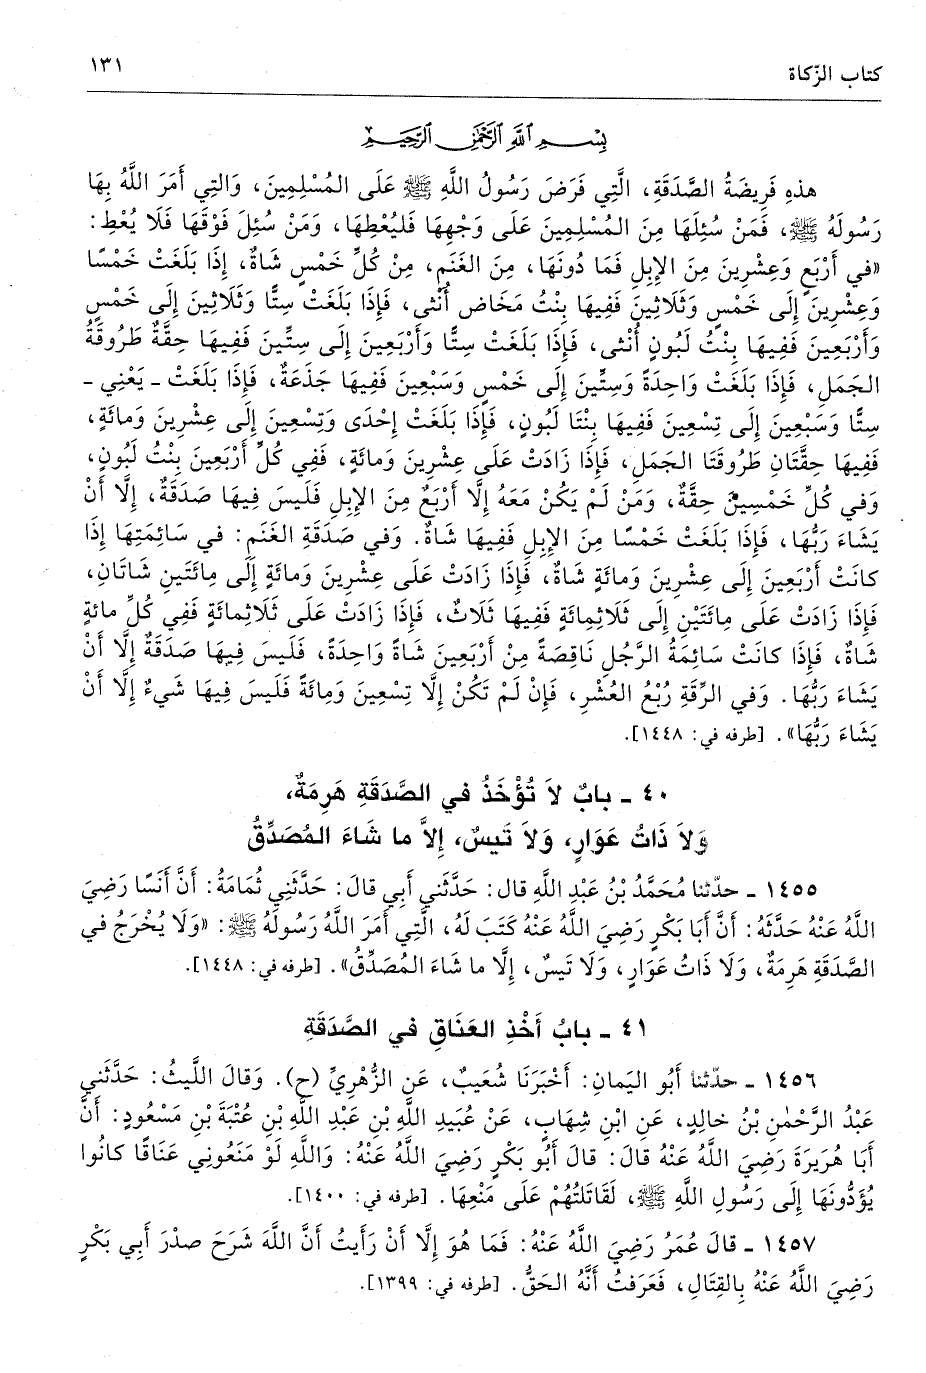 كتاب الزّكاة
١٣١
بِسْمِ اللَّهِ الرَّحْمَٰنِ الرَّحِيمِ
هذهِ فَرِيضَةُ الصَّدَقَةِ، الَّتِي فَرَضَ رَسُولُ اللَّهِ ﷺ عَلَى المُسْلِمِينَ، وَالتِي أَمَرَ اللَّهُ بِهَا
رَسُولَهُ ﷺ، فَمَنْ سُئِلَهَا مِنَ المُسْلِمِينَ عَلَى وَجْهِهَا فَليُعْطِهَا، وَمَنْ سُئِلَ فَوْقَهَا فَلَا يُعْطِ:
«في أَرْبَعٍ وَعِشْرِينَ مِنَ الإِبِلِ فَمَا دُونَهَا، مِنَ الغَنَمِ، مِنْ كُلِّ خَمْسٍ شَاةٌ، إِذَا بَلَغَتْ خَمْسًا
وَعِشْرِينَ إِلَى خَمْسٍ وَثَلَاثِينَ فَفِيهَا بِنْتُ مَخَاضٍ أُنْثى، فَإِذَا بَلَغَتْ سِتًّا وَثَلَاثِينَ إِلَى خَمْسٍ
وَأَرْبَعِينَ فَفِيهَا بِنْتُ لَبُونٍ أُنْثى، فَإِذَا بَلَغَتْ سِتًّا وَأَرْبَعِينَ إِلَى سِتِّينَ فَفِيهَا حِقَّةٌ طَرُوقَةُ
الجَمَلِ، فَإِذَا بَلَغَتْ وَاحِدَةً وَسِتِّينَ إِلَى خَمْسٍ وَسَبْعِينَ فَفِيهَا جَذَعَةٌ، فَإِذَا بَلَغَتْ - يَعْنِي -
سِتًّا وَسَبْعِينَ إِلَى تِسْعِينَ فَفِيهَا بِنْتَا لَبُونٍ، فَإِذَا بَلَغَتْ إِحْدَى وَتِسْعِينَ إِلَى عِشْرِينَ وَمائَةٍ،
فَفِيهَا حِقَّتَانِ طَرُوقَتَا الجَمَلِ، فَإِذَا زَادَتْ عَلَى عِشْرِينَ وَمائَةٍ، فَفِي كُلِّ أَرْبَعِينَ بِنْتُ لَبُونٍ،
وَفي كُلِّ خَمْسِينَ حِقَّةٌ، وَمَنْ لَمْ يَكُنْ مَعَهُ إِلَّا أَرْبَعٌ مِنَ الإِبِلِ فَلَيسَ فِيهَا صَدَقَةٌ، إِلَّا أَنْ
يَشَاءَ رَبُّهَا، فَإِذَا بَلَغَتْ خَمْسًا مِنَ الإِبِلِ فَفِيهَا شَاةٌ. وَفي صَدَقَةِ الغَنَمِ: في سَائِمَتِهَا إِذَا
كانَتْ أَرْبَعِينَ إِلَى عِشْرِينَ وَمائَةٍ شَاةٌ، فَإِذَا زَادَتْ عَلَى عِشْرِينَ وَمائَةٍ إِلَى مِائَتَينِ شَاتَانِ،
فَإِذَا زَادَتْ عَلَى مِائَتَيْنِ إِلَى ثَلَاثِمائَةٍ فَفِيهَا ثَلَاثٌ، فَإِذَا زَادَتْ عَلَى ثَلَاثِمائَةٍ فَفِي كُلِّ مائةٍ
شَاةٌ، فَإِذَا كانَتْ سَائِمَةُ الرَّجُلِ نَاقِصَةً مِنْ أَرْبَعِينَ شَاةً وَاحِدَةً، فَلَيسَ فِيهَا صَدَقَةٌ إِلَّا أَنْ
يَشَاءَ رَبُّهَا. وَفي الرِّقَةِ رُبْعُ العُشْرِ، فَإِنْ لَمْ تَكُنْ إِلَّا تِسْعِينَ وَمِائَةً فَلَيسَ فِيهَا شَيءٌ إِلَّا أَنْ
يَشَاءَ رَبُّهَا». [طرفه في: ١٤٤٨].
٤٠ - بابٌ لَا تُؤْخَذُ في الصَّدَقَةِ هَرِمَةٌ،
وَلَا ذَاتُ عَوَارٍ، وَلَا تَيسٌ، إِلَّا ما شَاءَ المُصَدِّقُ
١٤٥٥ - حدّثنا مُحَمَّدُ بْنُ عَبْدِ اللَّهِ قال: حَدَّثَنِي أَبِي قالَ: حَدَّثَنِي ثُمَامَةُ: أَنَّ أَنَسًا رَضِيَ
اللَّهُ عَنْهُ حَدَّثَهُ: أَنَّ أَبَا بَكْرٍ رَضِيَ اللَّهُ عَنْهُ كَتَبَ لَهُ، الَّتِي أَمَرَ اللَّهُ رَسُولَهُ ﷺ: «وَلَا يُخْرَجُ في
الصَّدَقَةِ هَرِمَةٌ، وَلَا ذَاتُ عَوَارٍ، وَلَا تَيسٌ، إِلَّا ما شَاءَ المُصَدِّقُ». [طرفه في: ١٤٤٨].
٤١ - بابُ أَخْذِ العَنَاقِ في الصَّدَقَةِ
١٤٥٦ - حدّثنا أَبُو اليَمانِ: أَخْبَرَنَا شُعَيبٌ، عَنِ الزُّهْرِيِّ (ح). وَقالَ اللَّيثُ: حَدَّثَنِي
عَبْدُ الرَّحْمٰنِ بْنُ خالِدٍ، عَنِ ابْنِ شِهَابٍ، عَنْ عُبَيدِ اللَّهِ بْنِ عَبْدِ اللَّهِ بْنِ عُتْبَةَ بْنِ مَسْعُودٍ: أَنَّ
أَبَا هُرَيرَةَ رَضِيَ اللَّهُ عَنْهُ قالَ: قالَ أَبُو بَكْرٍ رَضِيَ اللَّهُ عَنْهُ: وَاللَّهِ لَوْ مَنَعُونِي عَنَاقًا كانُوا
يُؤَدُّونَهَا إِلَى رَسُولِ اللَّهِ ﷺ، لَقَاتَلتُهُمْ عَلَى مَنْعِهَا. [طرفه في: ١٤٠٠].
١٤٥٧ - قالَ عُمَرُ رَضِيَ اللَّهُ عَنْهُ: فَمَا هُوَ إِلَّا أَنْ رَأَيتُ أَنَّ اللَّهَ شَرَحَ صدْرَ أَبِي بَكْرٍ
رَضِيَ اللَّهُ عَنْهُ بِالقِتَالِ، فَعَرَفتُ أَنَّهُ الحَقُّ. [طرفه في: ١٣٩٩].